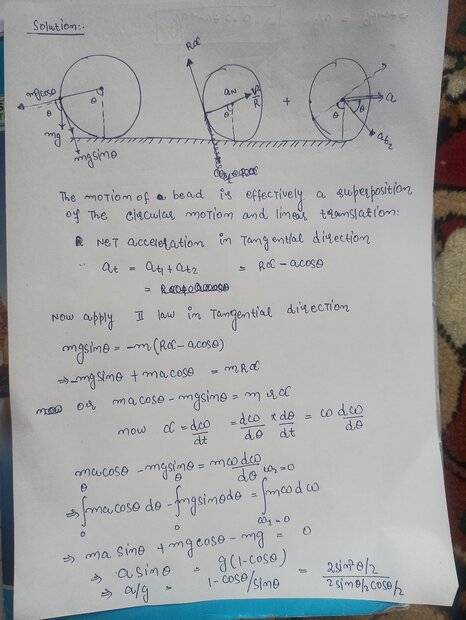 Solution:-
Rα
mgcosθ
θ
mg
mgsinθ
θ
aN
V²/R
θ
+
θ
θ
a
at2
The motion of a bead is effectively a superposition
of The circular motion and linear translation:
Net acceleration in Tangential direction
at = at1 + at2 = Rα - acosθ
=
Now apply II law in Tangential direction
mgsinθ = -m(Rα - acosθ)
⇒ -mgsinθ + macosθ = mRα
or macosθ - mgsinθ = mrα
now α = dω/dt = dω/dθ × dθ/dt = ω dω/dθ
macosθ - mgsinθ = mω dω/dθ
⇒ ∫₀^θ macosθ dθ - ∫₀^θ mgsinθ dθ = ∫_{ω1=0}^{ω2=0} mω dω
⇒ ma sinθ + mgcosθ - mg = 0
⇒ a sinθ = g(1-cosθ)
⇒ a/g = 1-cosθ/sinθ = 2sin²θ/2 / 2sinθ/2 cosθ/2